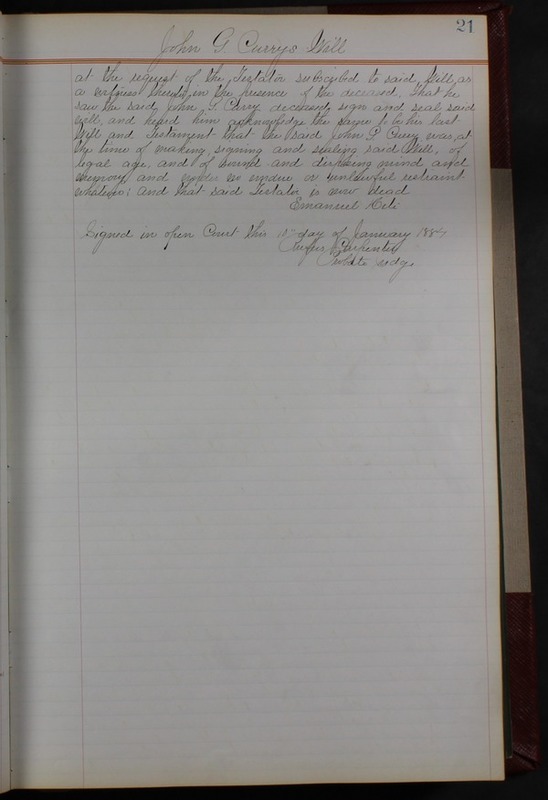 21
John G. Currys Will
at the request of the Testator subscribed to said Will, as
a witness thereto, in the presence of the deceased, That he
saw the said John G. Curry deceased, sign and seal said
will, and heard him acknowledge the same to be his last
Will and Testament that the said John G. Curry was, at
the time of making, signing and sealing said Will, of
legal age, and of sound and disposing mind and
memory and under no undue or unlawful restraint
whatever; and that said Testator is now dead
Emanuel
Signed in open Court this 10th day of January 188
Carpenter
Probate Judge